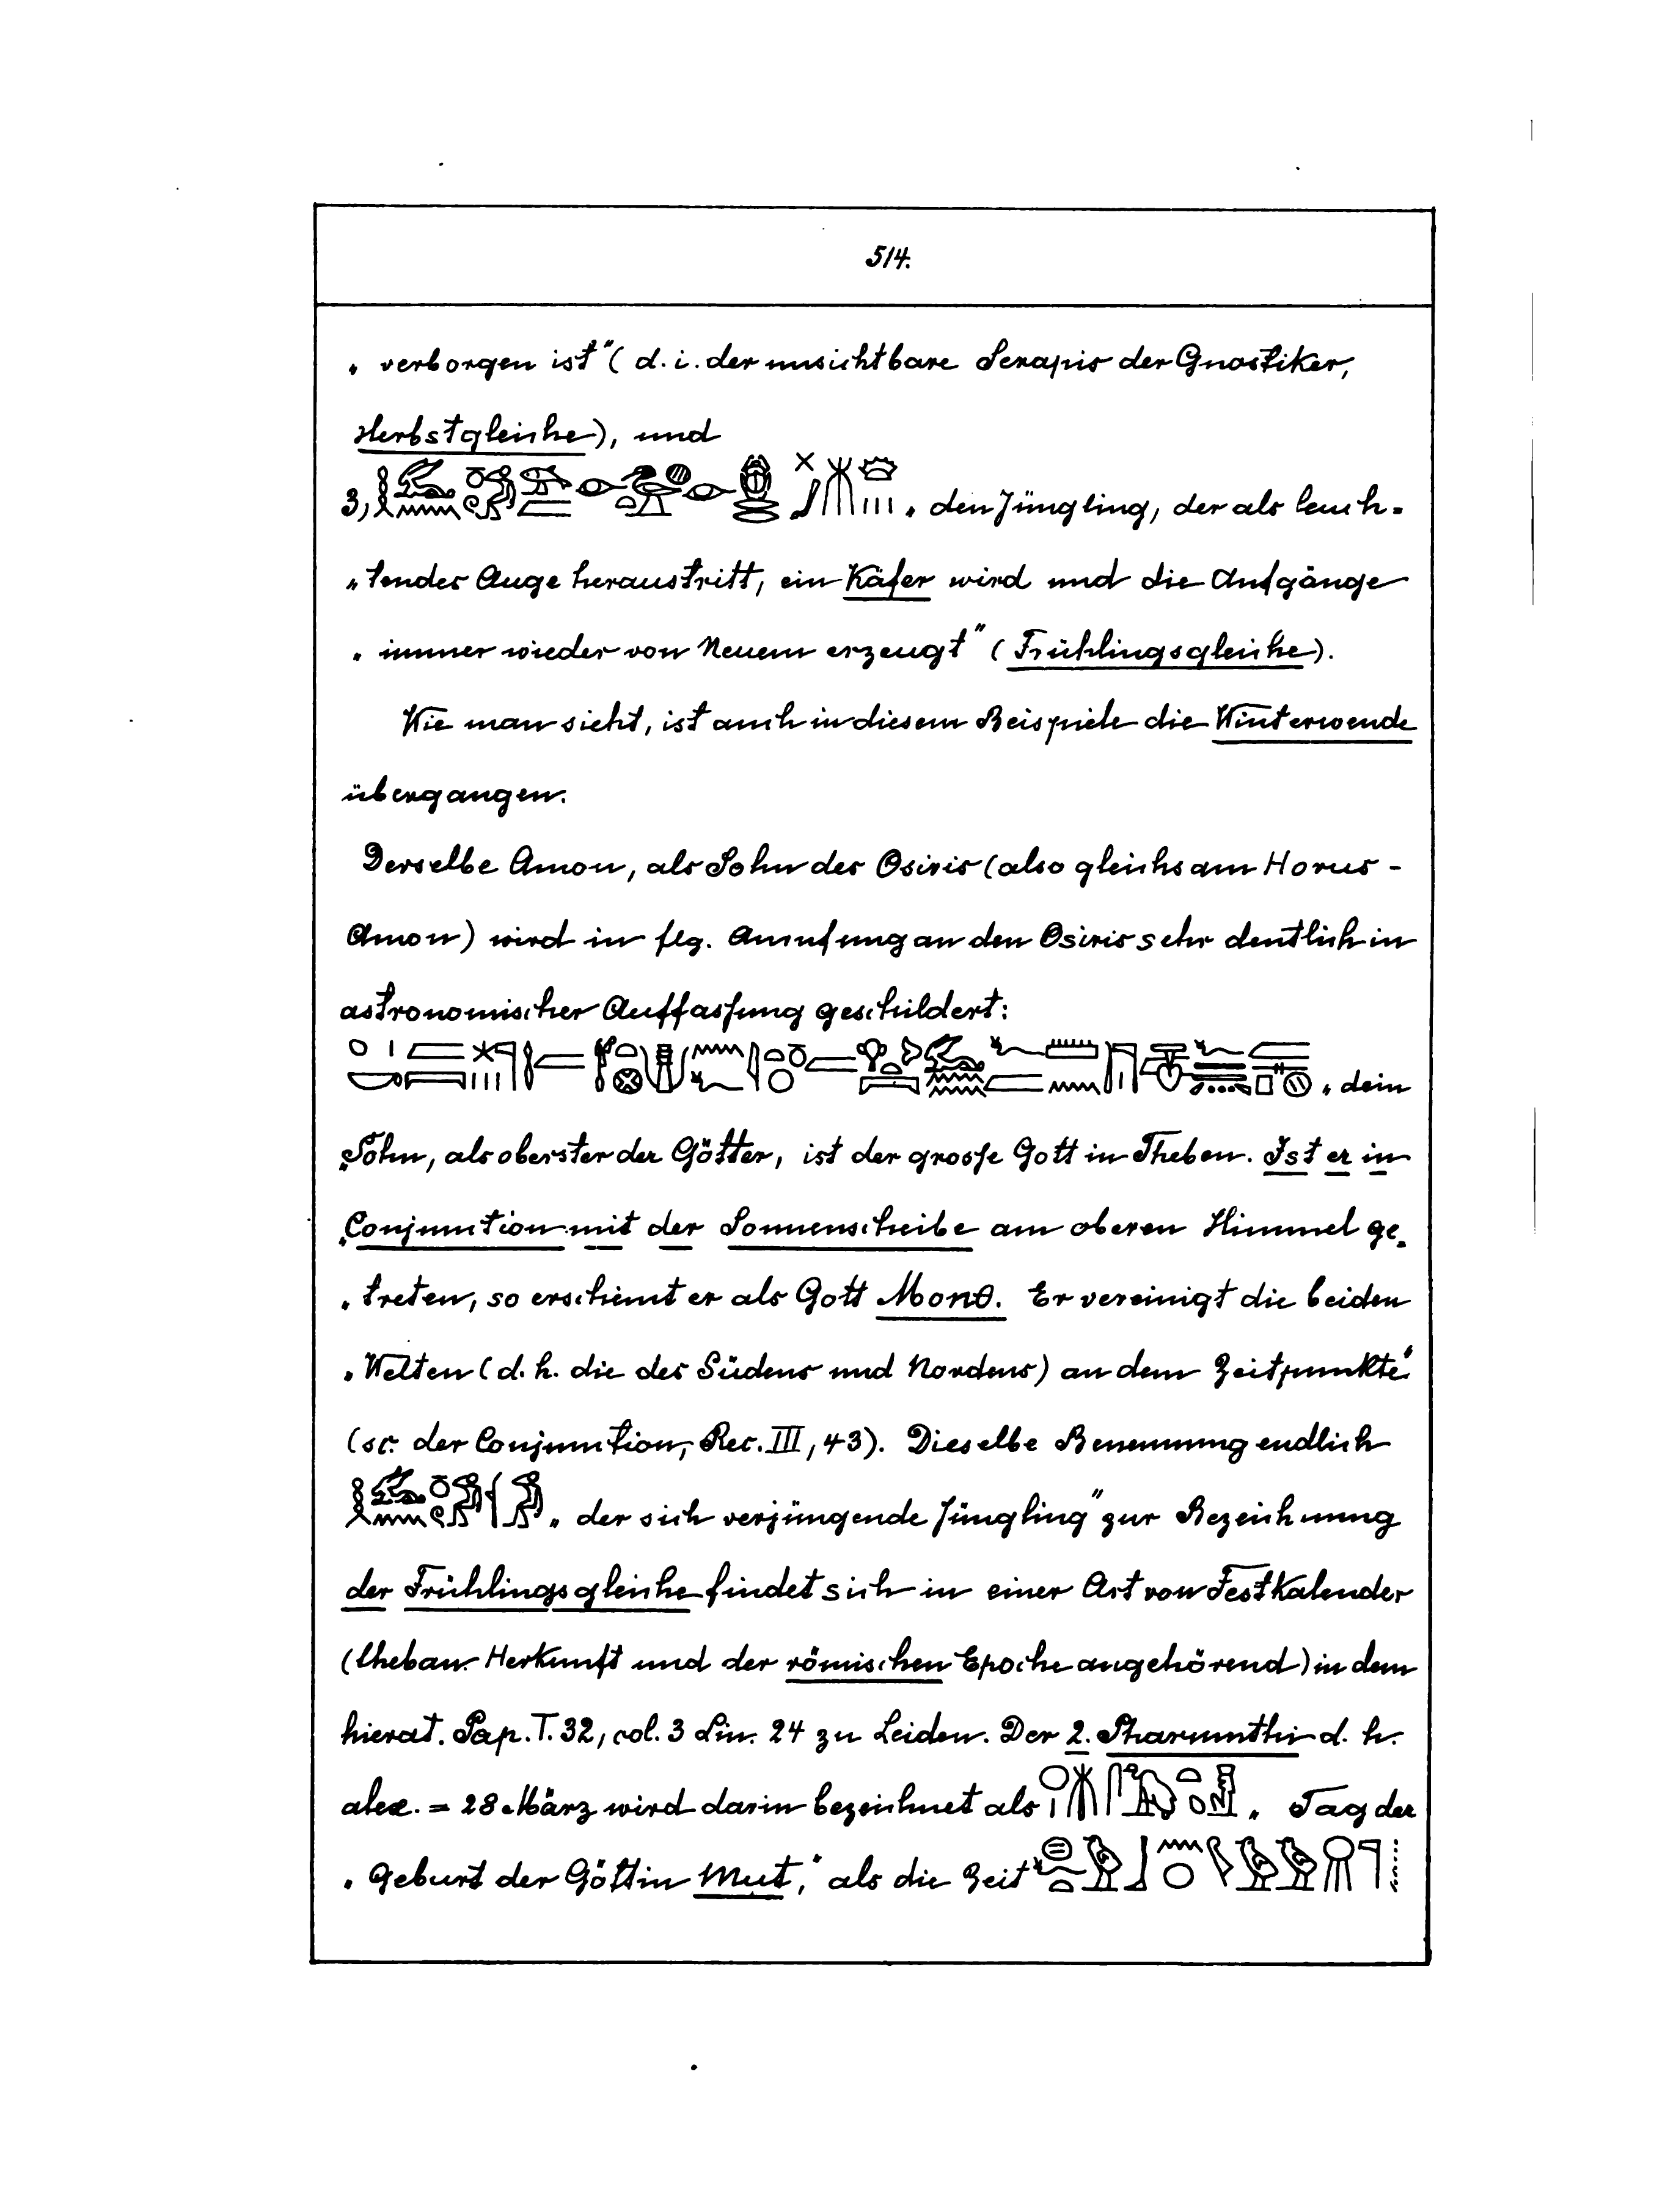 514.
„ verborgen ist" (d. i. der unsichtbare Serapis der Gnostiker,
Herbstgleiche), und
3, „ den Jüngling, der als leuch-
„ tendes Auge heraustritt, ein Käfer wird und die Aufgänge
„ immer wieder von Neuem erzeugt" (Frühlingsgleiche).
Wie man sieht, ist auch in diesem Beispiele die Winterwende
übergangen.
Derselbe Amon, als Sohn des Osiris (also gleichsam Horus-
Amon) wird in flg. Anrufung an den Osiris sehr deutlich in
astronomischer Auffassung geschildert:
„ dein
„ Sohn, als oberster der Götter, ist der grosse Gott in Theben. Ist er in
„ Conjunction mit der Sonnenscheibe am oberen Himmel ge-
„ treten, so erscheint er als Gott Monθ. Er vereinigt die beiden
„ Welten (d. h. die des Südens und Nordens) an dem Zeitpunkte"
(sc. der Conjunction, Rec. III, 43). Dieselbe Benennung endlich
„ der sich verjüngende Jüngling" zur Bezeichnung
der Frühlingsgleiche findet sich in einer Art von Festkalender
(theban. Herkunft und der römischen Epoche angehörend) in dem
hierat. Pap. T. 32, col. 3 Lin. 24 zu Leiden. Der 2. Pharmuthi d. h.
alex. = 28 März wird darin bezeichnet als „ Tag der
„ Geburt der Göttin Mut," als die Zeit